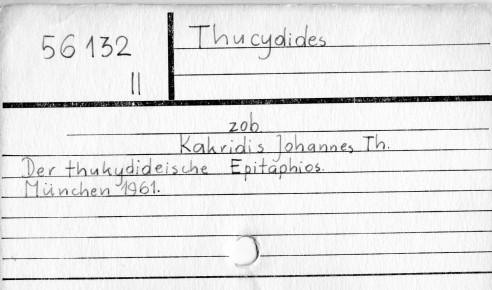 56132
II
Thucydides
zob.
Kakridis Johannes Th.
Der thukydideische Epitaphios.
München 1961.